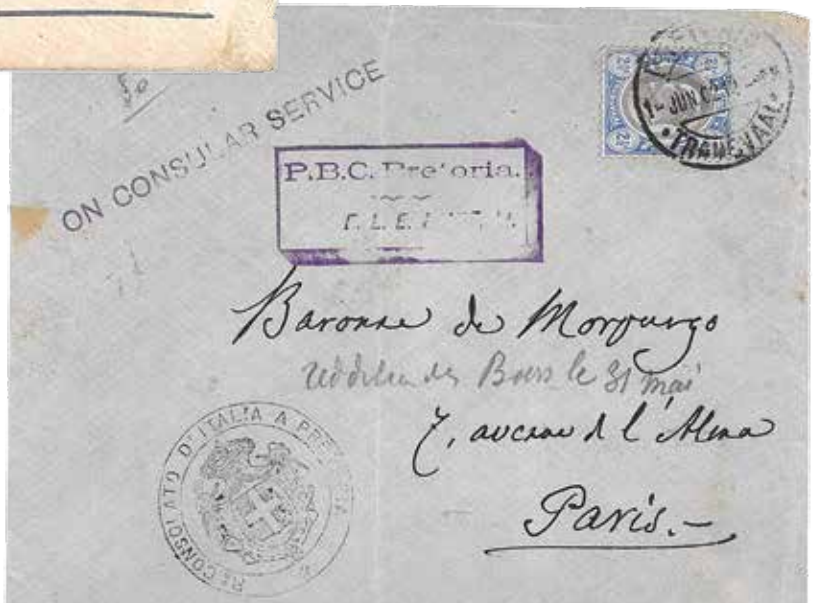 ON CONSULAR SERVICE
P.B.C. Pretoria.
1 - JUN 02
TRANSVAAL
Baronne de Morpurgo
reddition des Boers le 31 mai
7, avenue de l'Alma
Paris.-
R. CONSOLATO D'ITALIA A PRETORIA